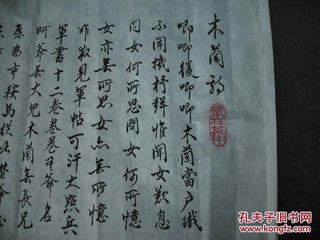 木蘭詩
唧唧複唧唧木蘭當户織
不聞機杼聲惟聞女歎息
問女何所思問女何所憶
女亦無所思女亦無所憶
昨夜見軍帖可汗大點兵
軍書十二卷卷卷有爺名
阿爺無大兒木蘭無長兄
愿為市鞍馬從此替爺
孔夫子旧书网